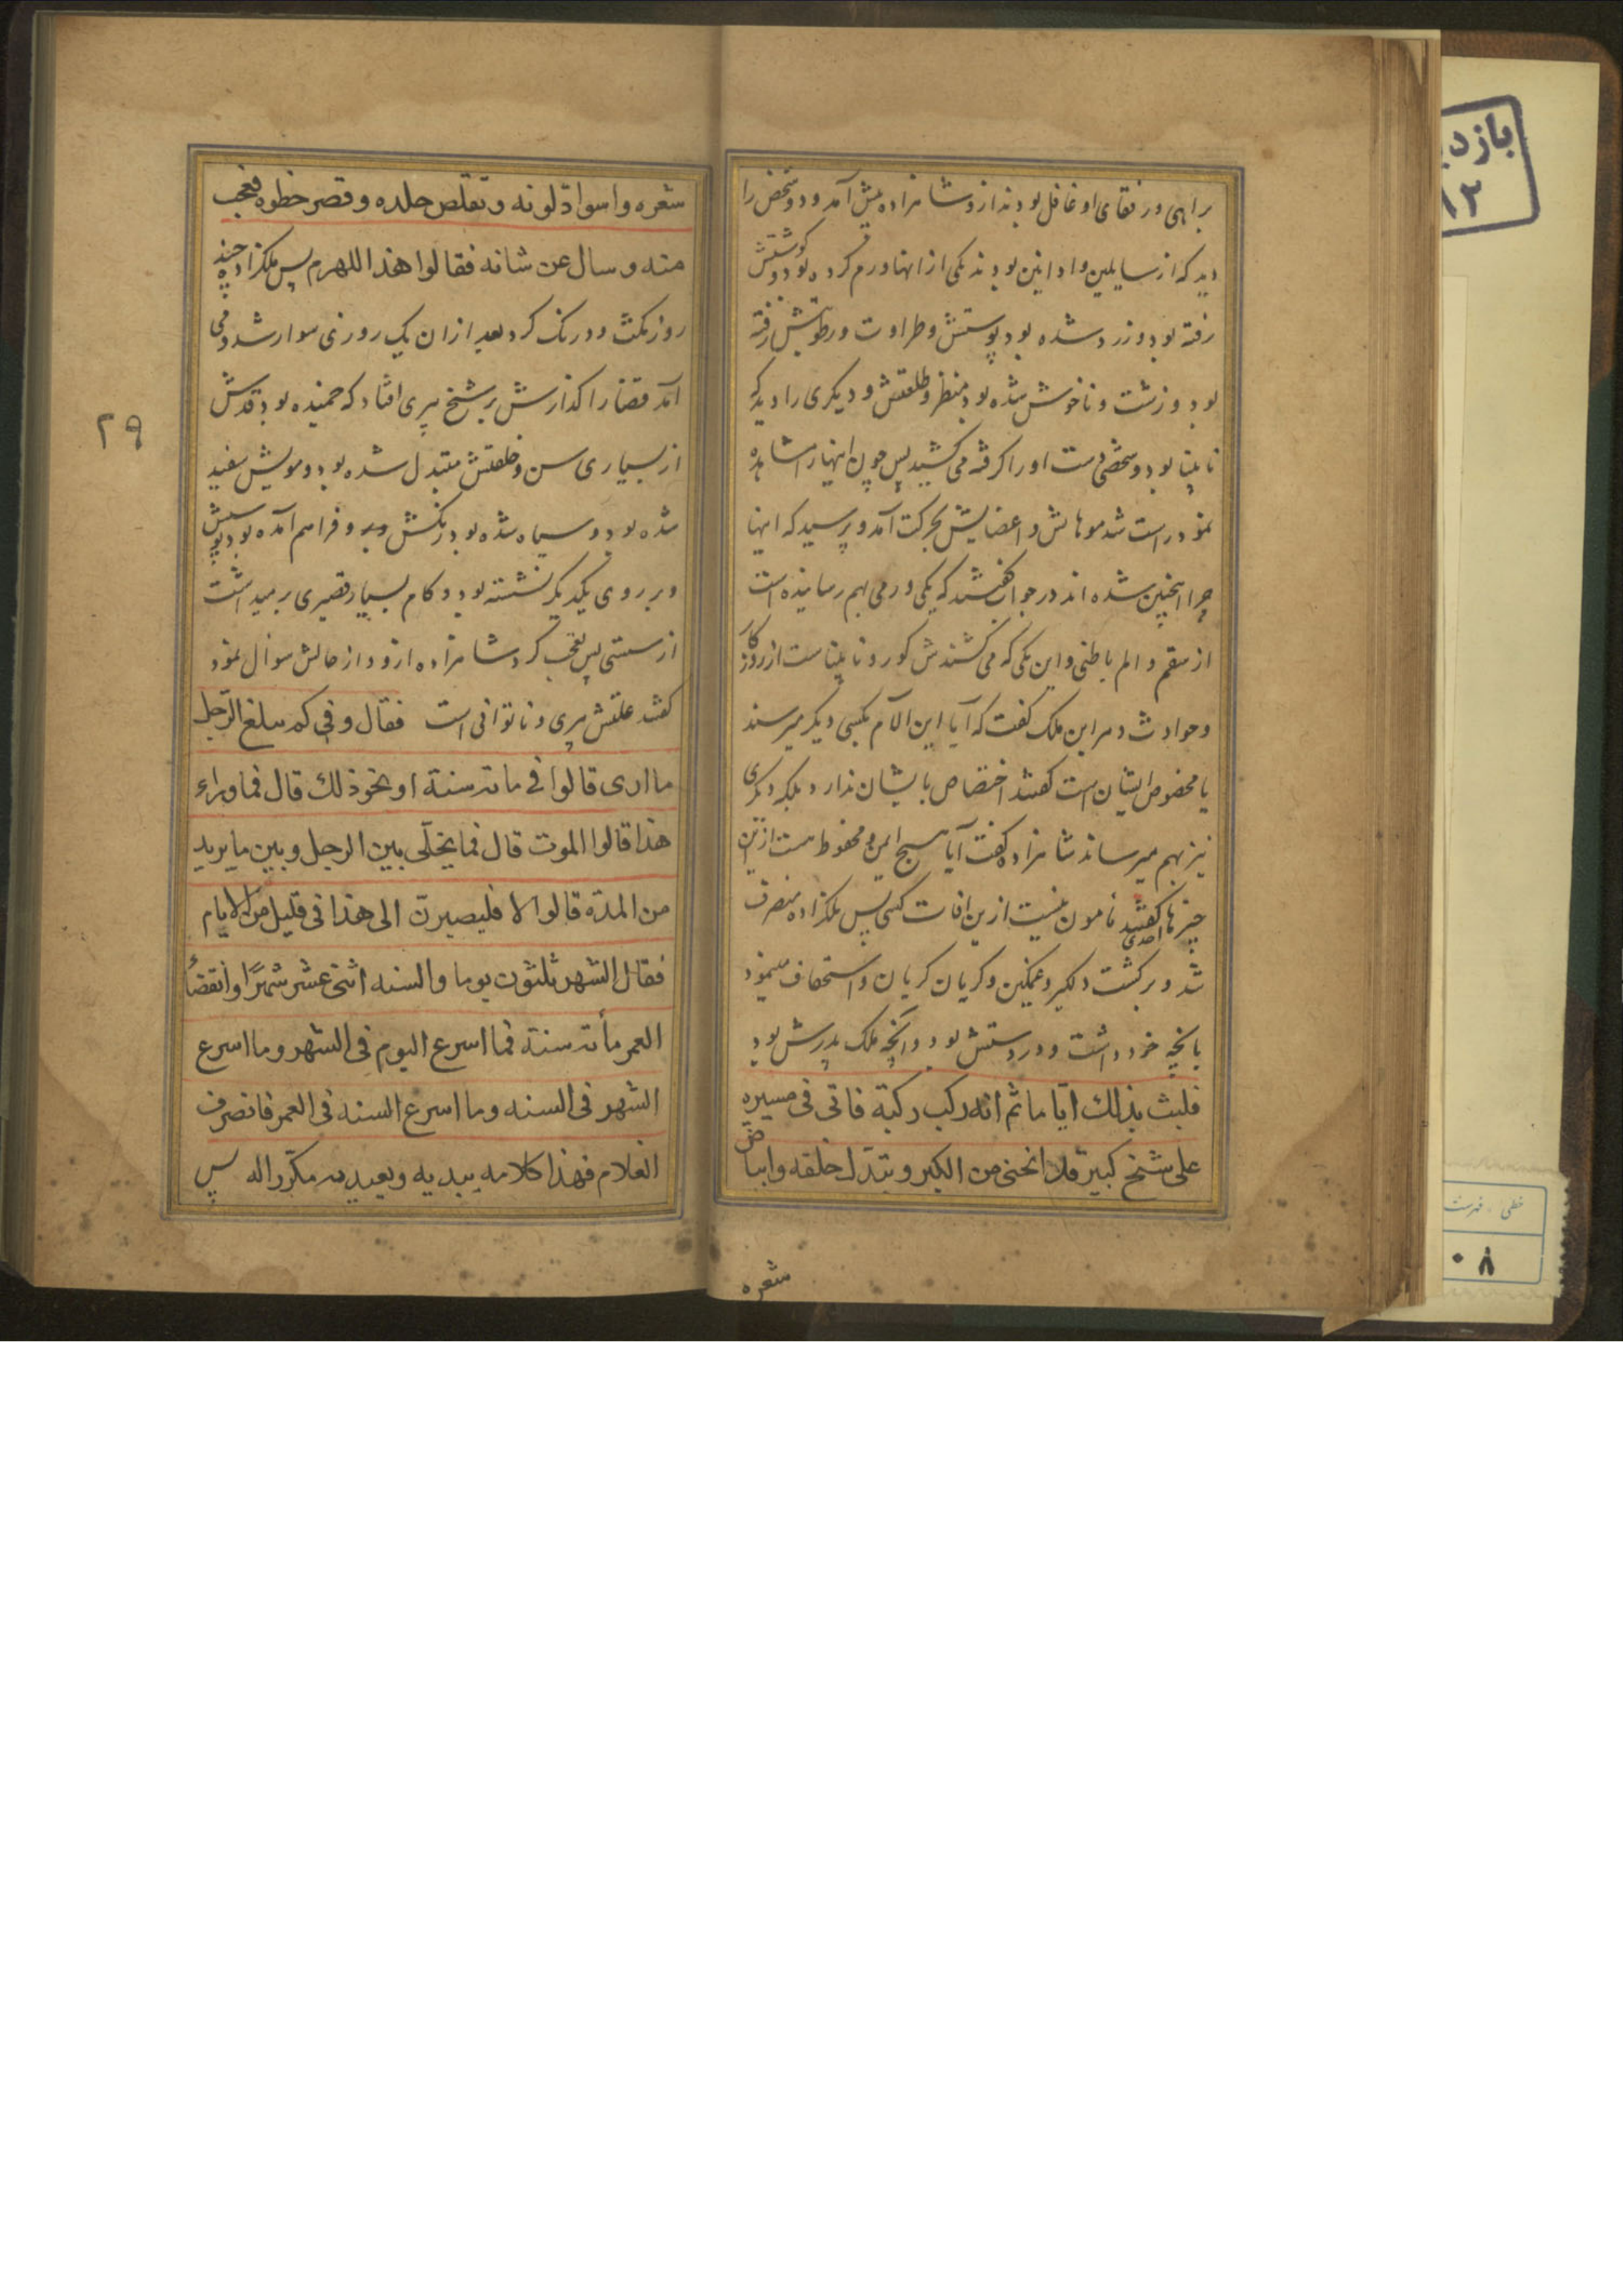 براهی ورفقای او غافل بودند ازو شاهزاده پیش آمد و دو شخص را
دید که از سایلین و اداینن بودند یکی از انها ورم کرده بود و گوشتش
رفته بود و زرد شده بود پوستش و طراوت و رطوبتش رفته
بود و زشت و ناخوش شده بود منظر و طلعتش و دیکری را دید که
نابینا بود و شخصی دست او را کرفته می کشید پس چون اینها را مشاهده
نمود راست شد موهاش و اعضایش بحرکت آمد و پرسید که اینها
چرا اینچنین شده اند در جواب کفتند که یکی ورمی بهم رسانیده است
از سقم و الم باطنی و این یکی که می کشندش کور و نابیناست از روزکار
و حوادث دهر ابن ملک کفت که آیا این الآم بکسی دیکر میرسند
یا مخصوص ایشان است کفتند اختصاص بایشان ندارد بلکه دیکری
نیز بهم میرساند شاهزاده کفت آیا هیچ ایمن و محفوظ هست ازین
چیزها احدی کفتند نامون نیست ازین افات کسی پس ملکزاده منصرف
شد و برکشت دلکیر و غمکین و کریان کریان و استخفاف مینمود
بانچه خود داشت و در دستش بود و آنچه ملک پدرش بود
فلبث بذالك ایّاما ثم انه رکب رکبة فاتی فی مسیره
علی شیخ کبیر قد انحنی من الکبر و تبدّل خلقه وابیاض
شعره
شعره واسوادّ لونه و تقلّص جلده و قصر خطوه فعجب
منه و سال عن شانه فقالوا هذا اللهرم پس ملکزاده چند
روز مکث و درنک کرد بعد از ان یک روزی سوار شد و می
آمد قضا را کذارش بر شیخ پیری افتاد که خمیده بود قدش
از بسیاری سن و خلقتش متبدل شده بود و مویش سفید
شده بود و سیاه شده بود رنکش و فراهم آمده بود پوستش
و بر روی یکدیکر نشسته بود و کام بسیار قصیری برمیداشت
از سستی پس تعجب کرد شاهزاده ازو و از حالش سوال نمود
کفتند علتش پیری و ناتوانی است فقال و فی کم یبلغ الرّجل
ما اری قالوا فی مائه سنة او نحو ذلك قال فما وراء
هذا قالوا الموت قال فما یخلّی بین الرجل و بین ما یرید
من المدّة قالوا لا فلیصیرنّ الی هذا فی قلیل من الایام
فقال الشهر ثلثون یوما و السنه اثنی عشر شهرًا و انقضاء
العمر مأته سنة فما اسرع الیوم فی الشهر و ما اسرع
الشهر فی السنه و ما اسرع السنه فی العمر فانصرف
الغلام فهذا کلامه یبدیه و یعیده مکرّرا له پس
۲۹
بازد
۸۲
خطی . فهرست
۰۸